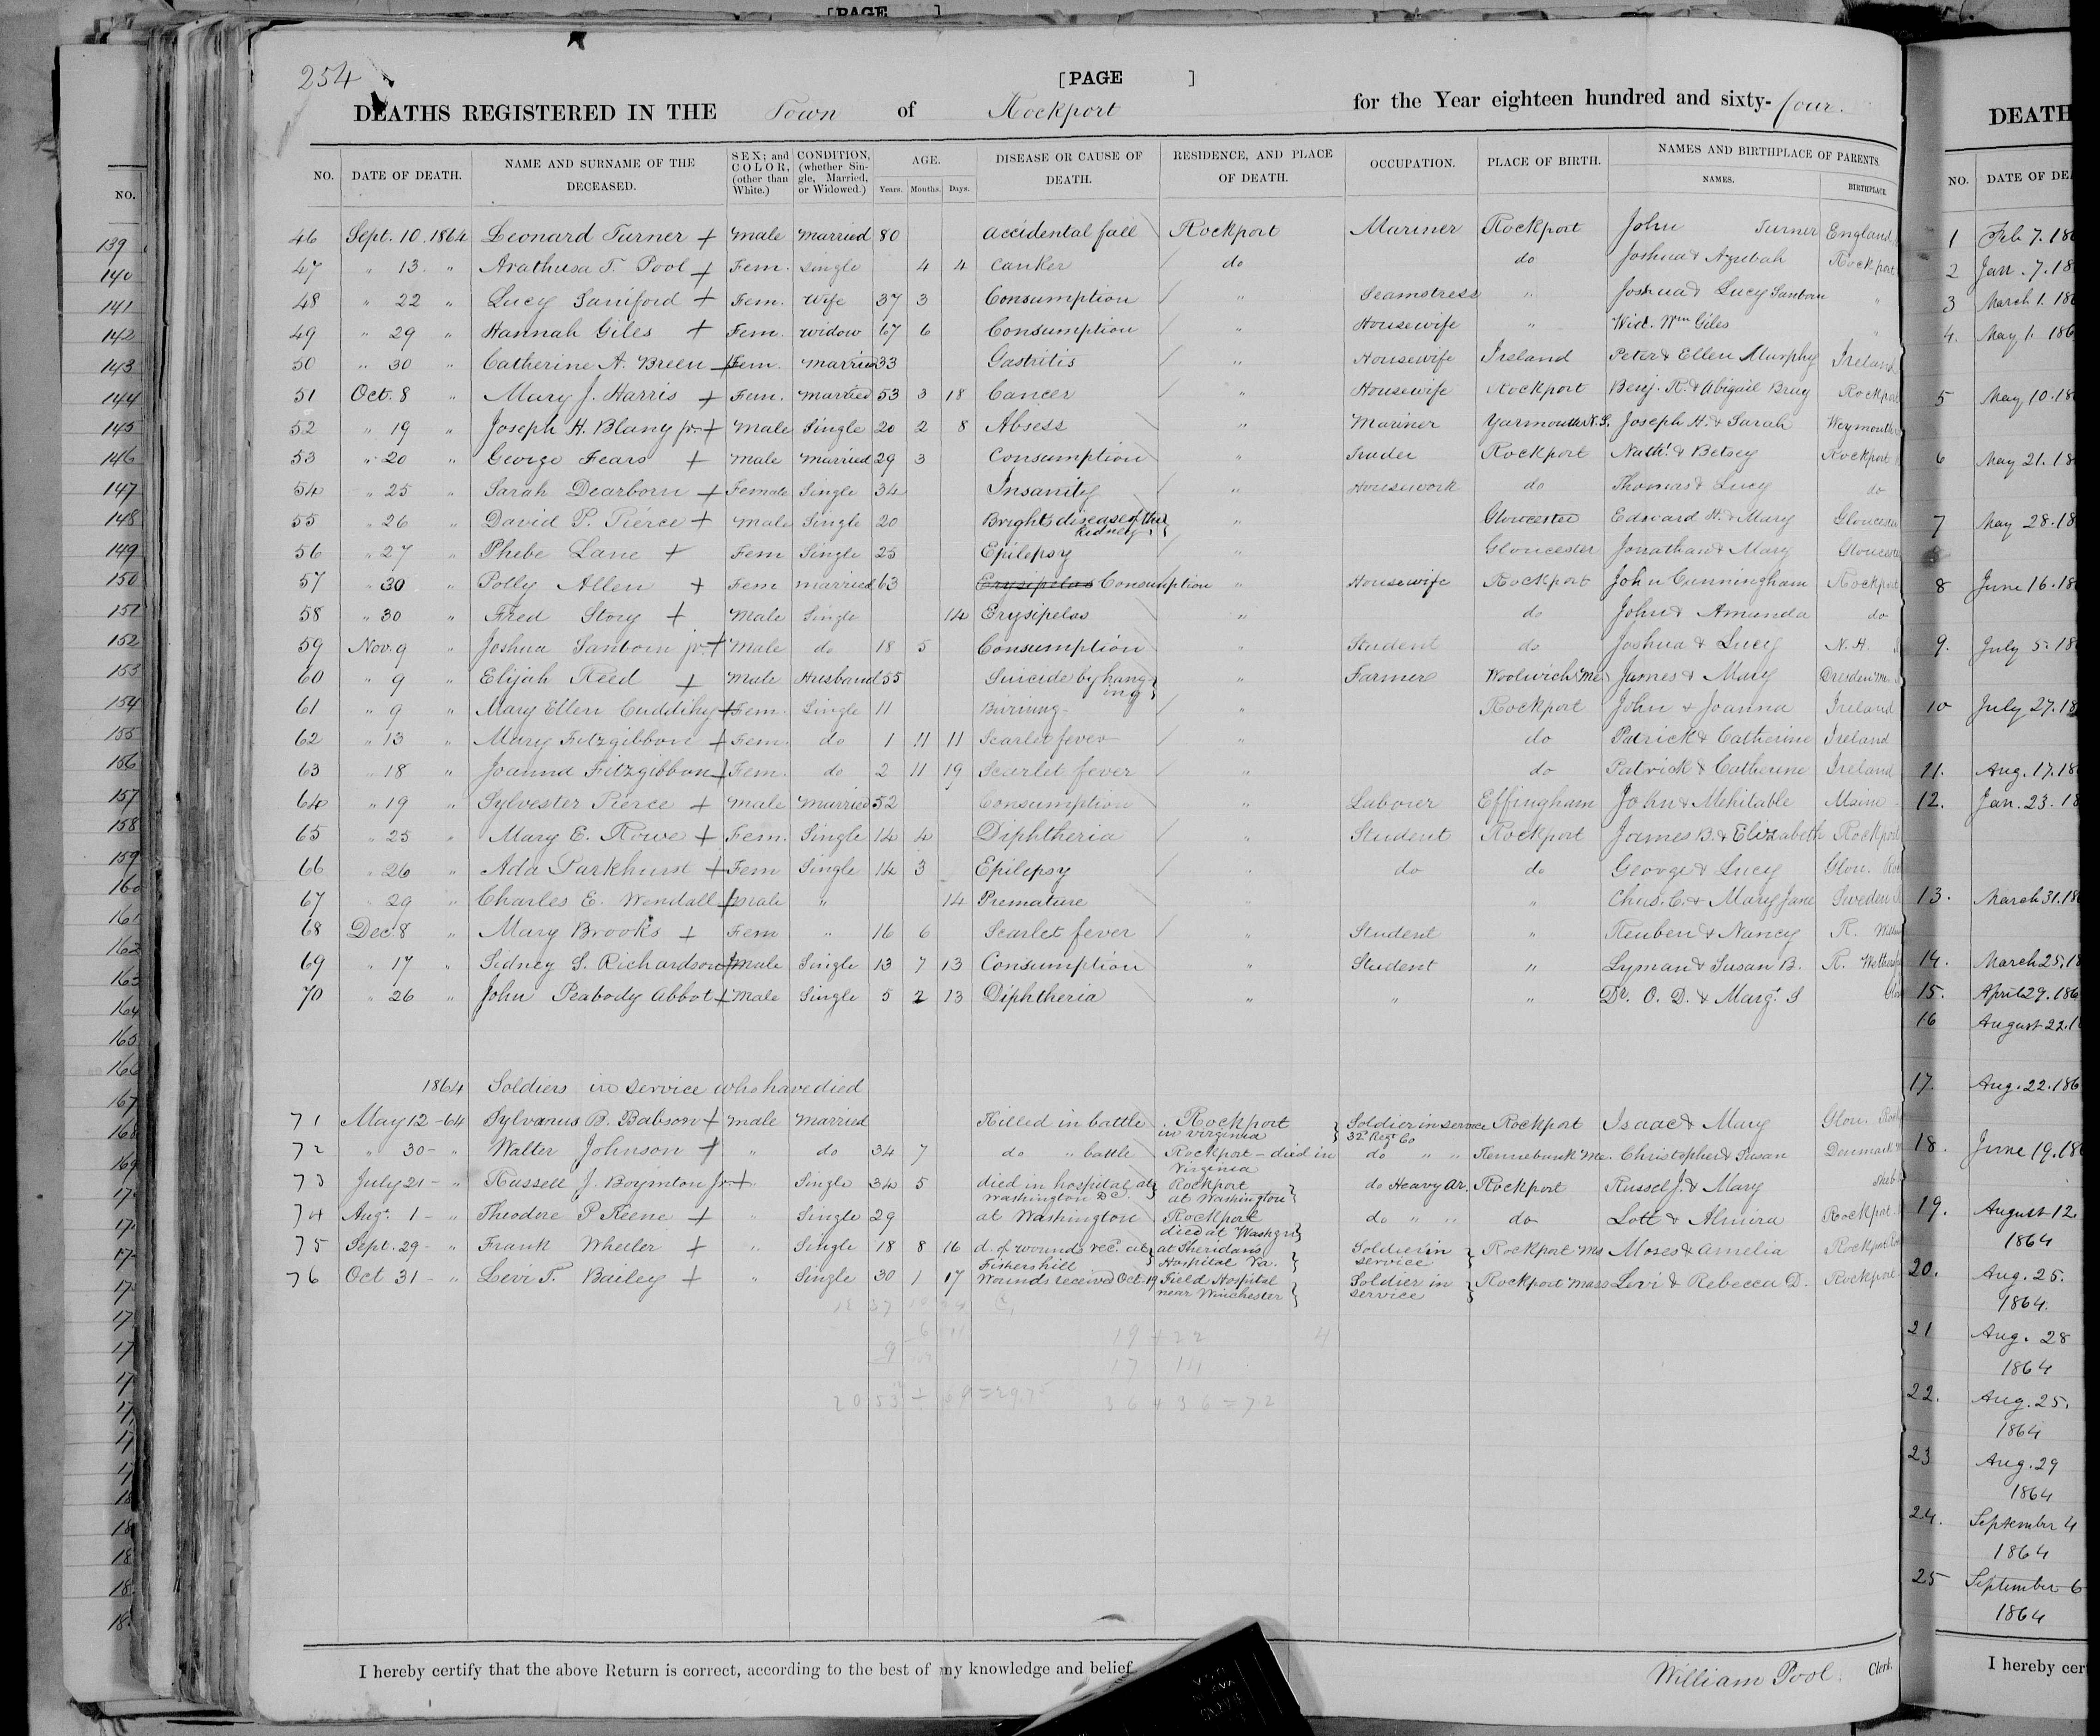 [PAGE ]
254
[PAGE ]
DEATHS REGISTERED IN THE Town of Rockport for the Year eighteen hundred and sixty-four.
NO. DATE OF DEATH. NAME AND SURNAME OF THE DECEASED. SEX; and COLOR, (other than White.) CONDITION, (whether Single, Married, or Widowed.) AGE. Years. Months. Days. DISEASE OR CAUSE OF DEATH. RESIDENCE, AND PLACE OF DEATH. OCCUPATION. PLACE OF BIRTH. NAMES AND BIRTHPLACE OF PARENTS. NAMES. BIRTHPLACE.
46 Sept. 10, 1864 Leonard Turner + Male Married 80 accidental fall Rockport Mariner Rockport John Turner England
47 " 13. " Arathusa T. Pool + Fem. Single 4 4 Canker do do Joshua & Azubah Rockport
48 " 22 " Lucy Saniford + Fem. Wife 37 3 Consumption " Seamstress " Joshua & Lucy Sanborn "
49 " 29 " Hannah Giles + Fem. Widow 67 6 Consumption " Housewife " Wid. Wm Giles "
50 " 30 " Catherine A. Breen + Fem. Married 33 Gastritis " Housewife Ireland Peter & Ellen Murphy Ireland
51 Oct. 8 " Mary J. Harris + Fem. Married 53 3 18 Cancer " Housewife Rockport Benj. R. & Abigail Bray Rockport
52 " 19 " Joseph H. Blany jr. + Male Single 20 2 8 Absess " Mariner Yarmouth N.S. Joseph H. & Sarah Weymouth
53 " 20 " George Fears + Male Married 29 3 Consumption " Trader Rockport Nathl. & Betsey Rockport
54 " 25 " Sarah Dearborn + Female Single 34 Insanity " Housework do Thomas & Lucy do
55 " 26 " David P. Pierce + Male Single 20 Brights disease of the Kidney } " Gloucester Edward H. & Mary
56 " 27 " Phebe Lane + Fem Single 25 Epilepsy " Gloucester Jonathan & Mary
57 " 30 " Polly Allen + Fem married 63 Erysipelas Consumption " Housewife Rockport John Cunningham Rockport
58 " 30 " Fred Story + Male Single 14 Erysipelas " do John & Amanda do
59 Nov. 9 " Joshua Sanborn jr. + Male do 18 5 Consumption " Student do Joshua & Lucy N. H.
60 " 9 " Elijah Reed + Male Husband 55 Suicide by hanging } " Farmer Woolwich Me James & Mary Dresden Me
61 " 9 " Mary Ellen Cuddihy + Fem. Single 11 Burning " Rockport John & Joanna Ireland
62 " 13 " Mary Fitzgibbon + Fem. do 1 11 11 Scarlet fever " do Patrick & Catherine Ireland
63 " 18 " Joanna Fitzgibbon + Fem. do 2 11 19 Scarlet fever " do Patrick & Catherine Ireland
64 " 19 " Sylvester Pierce + Male Married 52 Consumption " Laborer Effingham John & Mehitable Maine
65 " 25 " Mary E. Rowe + Fem. Single 14 4 Diphtheria " Student Rockport James B. & Elizabeth Rockport
66 " 26 " Ada Parkhurst + Fem Single 14 3 Epilepsy " do do George & Lucy Glou.
67 " 29 " Charles E. Wendall + Male " 14 Premature " " Chas. C. & Mary Jane Sweden
68 Dec. 8 " Mary Brooks + Fem " 16 6 Scarlet fever " Student " Reuben & Nancy R.
69 " 17 " Sidney S. Richardson + Male Single 13 7 13 Consumption " Student " Lyman & Susan B. R.
70 " 26 " John Peabody Abbot + Male Single 5 2 13 Diphtheria " " " Dr. O. D. & Margt. S
1864 Soldiers in service who have died
71 May 12 -64 Sylvanus B. Babson + Male Married Killed in battle Rockport in Virginia } Soldier in service 32d Regt Co Rockport Isaac & Mary Glou.
72 " 30 - " Walter Johnson + " do 34 7 do " battle Rockport - died in Virginia do " " Kennebunk Me. Christopher & Susan Denmark
73 July 21 - " Russell J. Boynton Jr. + " Single 34 5 died in hospital at Washington DC. } Rockport at Washington } do Heavy Ar. Rockport Russel J. & Mary
74 Augt. 1 - " Theodore P Keene + " Single 29 at Washington Rockport died at Washgn } do " " do Lott & Almira Rockport
75 Sept. 29 - " Frank Wheeler + " Single 18 8 16 d. of wounds rec. at Fishers hill } at Sheridans Hospital Va. } Soldier in service } Rockport Ms Moses & Amelia Rockport
76 Oct 31 - " Levi T. Bailey + " Single 30 1 17 Wounds received Oct. 19 Field Hospital near Winchester } Soldier in service } Rockport Mass Levi & Rebecca D. Rockport
19 + 22
17
20 53 ÷ 69 = 29.75 36 + 36 = 72
I hereby certify that the above Return is correct, according to the best of my knowledge and belief.
William Pool. Clerk.
NO.
139
140
141
142
143
144
145
146
147
148
149
150
151
152
153
154
155
156
157
158
159
160
161
162
163
164
165
166
167
168
169
DEATH
NO. DATE OF DE
1 Feb 7. 18
2 Jan. 7. 18
3 March 1. 18
4. May 1. 186
5 May 10. 18
6 May 21. 18
7 May 28. 18
8 June 16. 18
9. July 5. 18
10 July 27. 18
11. Aug. 17. 18
12. Jan. 23. 18
13. March 31. 18
14. March 25. 18
15. April 29. 186
16 August 22. 1
17. Aug. 22. 186
18. June 19. 18
19. August 12
1864
20. Aug. 25.
1864.
21 Aug. 28
1864
22. Aug. 25.
1864
23 Aug. 29
1864
24. September 4
1864
25 September 6
1864
I hereby cer